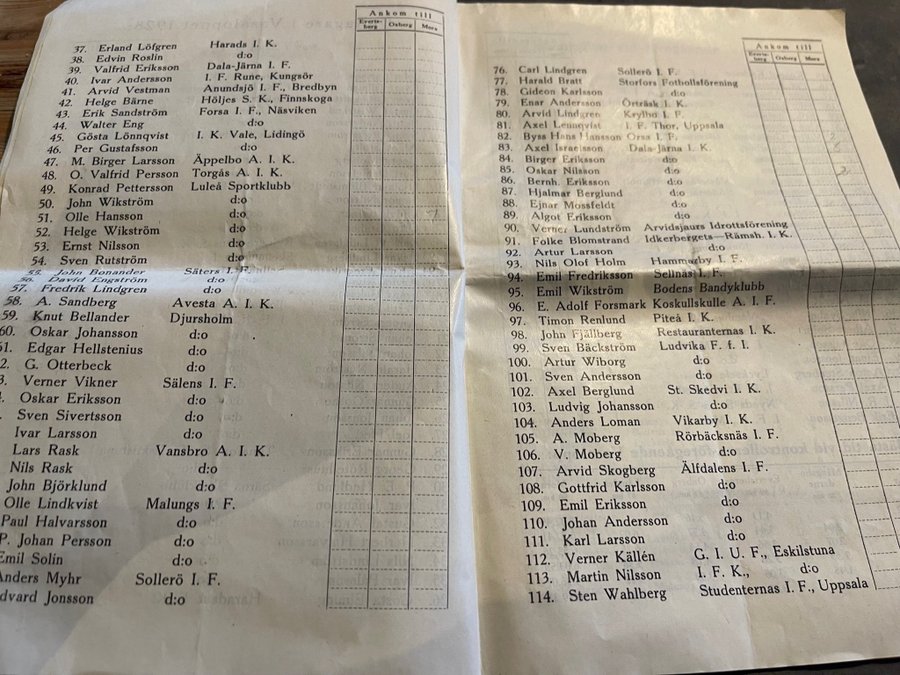 Ankom till
Evertsberg Oxberg Mora
37. Erland Löfgren Harads I. K.
38. Edvin Roslin d:o
39. Valfrid Eriksson Dala-Järna I. F.
40. Ivar Andersson I. F. Rune, Kungsör
41. Arvid Vestman Anundsjö I. F., Bredbyn
42. Helge Bärne Höljes S. K., Finnskoga
43. Erik Sandström Forsa I. F., Näsviken
44. Walter Eng d:o
45. Gösta Lönnqvist I. K. Vale, Lidingö
46. Per Gustafsson d:o
47. M. Birger Larsson Äppelbo A. I. K.
48. O. Valfrid Persson Torgås A. I. K.
49. Konrad Pettersson Luleå Sportklubb
50. John Wikström d:o
51. Olle Hansson d:o
52. Helge Wikström d:o
53. Ernst Nilsson d:o
54. Sven Rutström d:o
55. John Bonander Säters I. F.
56. David Engström d:o
57. Fredrik Lindgren d:o
58. A. Sandberg Avesta A. I. K.
59. Knut Bellander Djursholm
60. Oskar Johansson d:o
61. Edgar Hellstenius d:o
2. G. Otterbeck d:o
3. Verner Vikner Sälens I. F.
. Oskar Eriksson d:o
Sven Sivertsson d:o
Ivar Larsson d:o
Lars Rask Vansbro A. I. K.
Nils Rask d:o
John Björklund d:o
Olle Lindkvist Malungs I. F.
Paul Halvarsson d:o
P. Johan Persson d:o
Emil Solin d:o
Anders Myhr Sollerö I. F.
dvard Jonsson d:o
Ankom till
Evertsberg Oxberg Mora
76. Carl Lindgren Sollerö I. F.
77. Harald Bratt Storfors Fotbollsförening
78. Gideon Karlsson d:o
79. Enar Andersson Örträsk I. K.
80. Arvid Lindgren Krylbo I. F.
81. Axel Lennqvist I. F. Thor, Uppsala
82. Byss Hans Hansson Orsa I. F.
83. Axel Israelsson Dala-Järna I. K.
84. Birger Eriksson d:o
85. Oskar Nilsson d:o
86. Bernh. Eriksson d:o
87. Hjalmar Berglund d:o
88. Ejnar Mossfeldt d:o
89. Algot Eriksson d:o
90. Verner Lundström Arvidsjaurs Idrottsförening
91. Folke Blomstrand Idkerbergets—Rämsh. I. K.
92. Artur Larsson d:o
93. Nils Olof Holm Hammarby I. F.
94. Emil Fredriksson Sellnäs I. F.
95. Emil Wikström Bodens Bandyklubb
96. E. Adolf Forsmark Koskullskulle A. I. F.
97. Timon Renlund Piteå I. K.
98. John Fjällberg Restauranternas I. K.
99. Sven Bäckström Ludvika F. f. I.
100. Artur Wiborg d:o
101. Sven Andersson d:o
102. Axel Berglund St. Skedvi I. K.
103. Ludvig Johansson d:o
104. Anders Loman Vikarby I. K.
105. A. Moberg Rörbäcksnäs I. F.
106. V. Moberg d:o
107. Arvid Skogberg Älfdalens I. F.
108. Gottfrid Karlsson d:o
109. Emil Eriksson d:o
110. Johan Andersson d:o
111. Karl Larsson d:o
112. Verner Källén G. I. U. F., Eskilstuna
113. Martin Nilsson I. F. K., d:o
114. Sten Wahlberg Studenternas I. F., Uppsala